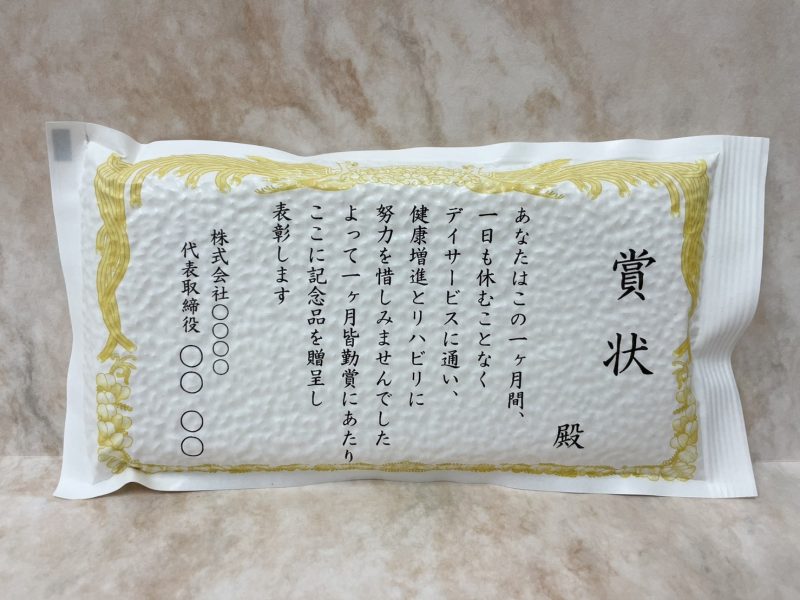 賞状
殿
あなたはこの一ヶ月間、
一日も休むことなく
デイサービスに通い、
健康増進とリハビリに
努力を惜しみませんでした
よって一ヶ月皆勤賞にあたり
ここに記念品を贈呈し
表彰します
株式会社〇〇〇〇
代表取締役 〇〇 〇〇